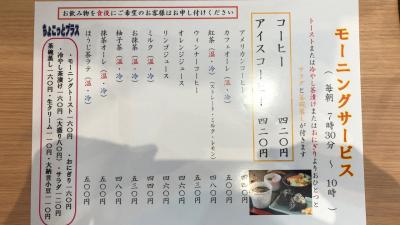 モーニングサービス
(毎朝 7時30分 〜 10時)
トーストまたは冷やし茶漬けまたはおにぎりよりおひとつと
サラダと茶碗蒸しが付きます
コーヒー 四二〇円
アイスコーヒー 四二〇円
アメリカンコーヒー
カフェオーレ(温・冷)
紅茶(温・冷)(ストレート・ミルク・レモン)
ウィンナーコーヒー
オレンジジュース
リンゴジュース
ミルク(温・冷)
お抹茶(温・冷)
柚子茶(温・冷)
抹茶オーレ(温・冷)
ほうじ茶ラテ(温・冷) 五〇〇円
お飲み物を食後にご希望のお客様はお申し付けください
ちょこっとプラス
・モーニングトースト 一六〇円 ・おにぎり 一六〇円
・冷やし茶漬け 一六〇円(大盛り八〇円)・サラダ 一二〇円
・茶碗蒸し 一六〇円・生クリーム 一一〇円・大納言小豆 一一〇円